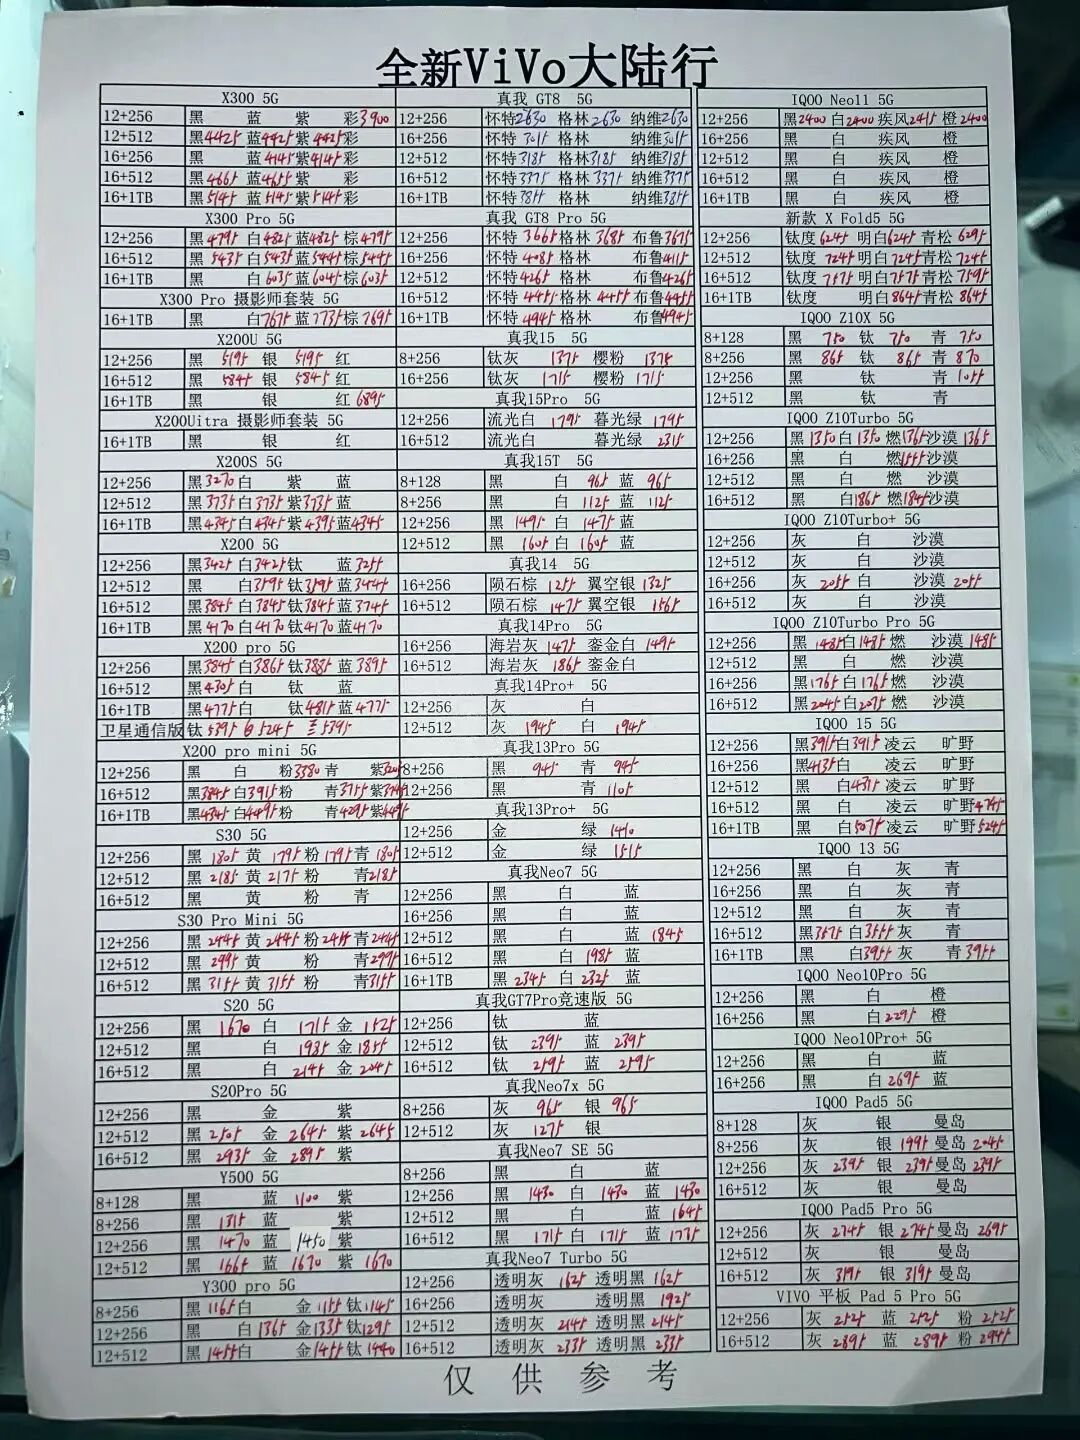 全新ViVo大陆行
X300 5G
12+256 黑 蓝 紫 彩3900
12+512 黑4425 蓝4425 紫4425 彩
16+256 黑 蓝4145 紫4145 彩
16+512 黑4665 蓝4655 紫 彩
16+1TB 黑5145 蓝5145 紫5145 彩
X300 Pro 5G
12+256 黑4795 白4825 蓝4825 棕4795
16+512 黑5435 白5435 蓝5445 棕5445
16+1TB 黑 白6035 蓝6045 棕6035
X300 Pro 摄影师套装 5G
16+1TB 黑 白7675 蓝7735 棕7695
X200U 5G
12+256 黑 5195 银 5195 红
16+512 黑 5845 银 5845 红
16+1TB 黑 银 红 6895
X200Uitra 摄影师套装 5G
16+1TB 黑 银 红
X200S 5G
12+256 黑3270 白 紫 蓝
12+512 黑3735 白3735 紫3735 蓝
16+1TB 黑4345 白4345 紫4395 蓝4345
X200 5G
12+256 黑3425 白3425 钛 蓝3255
12+512 黑 白3595 钛3595 蓝3444
16+512 黑3845 白3845 钛3845 蓝3745
16+1TB 黑4170 白4170 钛4170 蓝4170
X200 pro 5G
12+256 黑3845 白3865 钛3835 蓝3895
16+512 黑4305 白 钛 蓝
16+1TB 黑4775 白 钛4815 蓝4775
卫星通信版 钛 5395 白 5245 兰 5395
X200 pro mini 5G
12+256 黑 白 粉3380 青 紫
16+512 黑3845 白3915 粉 青3755 紫
16+1TB 黑4345 白4495 粉 青4295 紫
S30 5G
12+256 黑 1805 黄 1795 粉 1795 青 1805
12+512 黑 2185 黄 2175 粉 青2185
16+512 黑 黄 粉 青
S30 Pro Mini 5G
12+256 黑 2445 黄 2445 粉 2455 青 2445
12+512 黑 2995 黄 粉 青2995
16+512 黑 3155 黄 3155 粉 青3155
S20 5G
12+256 黑 1670 白 1715 金 1525
12+512 黑 白 1935 金 1855
16+512 黑 白 2145 金 2045
S20Pro 5G
12+256 黑 金 紫
12+512 黑 2505 金 2645 紫 2645
16+512 黑 2935 金 2895 紫
Y500 5G
8+128 黑 蓝 1100 紫
8+256 黑 1315 蓝 紫
12+256 黑 1470 蓝 1450 紫
12+512 黑 1665 蓝 1670 紫 1670
Y300 pro 5G
8+256 黑 1165 白 金 1155 钛1145
12+256 黑 白1365 金 1335 钛1295
12+512 黑 1455 白 金1455 钛 1440
真我 GT8 5G
12+256 怀特2630 格林 2630 纳维2630
16+256 怀特 3015 格林 纳维3015
12+512 怀特3185 格林3185 纳维3185
16+512 怀特3375 格林 3375 纳维3375
16+1TB 怀特3855 格林 纳维3855
真我 GT8 Pro 5G
12+256 怀特 3665 格林 3685 布鲁3675
16+256 怀特 4085 格林 布鲁4115
12+512 怀特4265 格林 布鲁4265
16+512 怀特 4455 格林 4455 布鲁4455
16+1TB 怀特 4945 格林 布鲁4945
真我15 5G
8+256 钛灰 1375 樱粉 1375
16+256 钛灰 1715 樱粉 1715
真我15Pro 5G
12+256 流光白 1795 暮光绿 1795
16+512 流光白 暮光绿 2315
真我15T 5G
8+128 黑 白 965 蓝 965
8+256 黑 白 1125 蓝 1125
12+256 黑 1495 白 1475 蓝
12+512 黑 1605 白 1605 蓝
真我14 5G
16+256 陨石棕 1255 翼空银 1325
16+512 陨石棕 1475 翼空银 1565
真我14Pro 5G
16+256 海岩灰 1475 銮金白 1495
16+512 海岩灰 1865 銮金白
真我14Pro+ 5G
12+256 灰 白
12+512 灰 1945 白 1945
真我13Pro 5G
8+256 黑 945 青 945
12+256 黑 青 1105
真我13Pro+ 5G
12+256 金 绿 1410
12+512 金 绿 1515
真我Neo7 5G
12+256 黑 白 蓝
16+256 黑 白 蓝
12+512 黑 白 蓝 1845
16+512 黑 白 1985 蓝
16+1TB 黑 2345 白 2325 蓝
真我GT7Pro竞速版 5G
12+256 钛 蓝
12+512 钛 2395 蓝 2395
16+512 钛 2595 蓝 2595
真我Neo7x 5G
8+256 灰 965 银 965
12+512 灰 1275 银
真我Neo7 SE 5G
8+256 黑 白 蓝
12+256 黑 1430 白 1430 蓝 1430
12+512 黑 白 蓝 1645
16+512 黑 1715 白 1715 蓝 1775
真我Neo7 Turbo 5G
12+256 透明灰 1625 透明黑 1625
16+256 透明灰 透明黑 1925
12+512 透明灰 2145 透明黑 2145
16+512 透明灰 2335 透明黑 2335
IQOO Neo11 5G
12+256 黑2400 白2400 疾风2415 橙 2400
16+256 黑 白 疾风 橙
12+512 黑 白 疾风 橙
16+512 黑 白 疾风 橙
16+1TB 黑 白 疾风 橙
新款 X Fold5 5G
12+256 钛度 6245 明白6245 青松 6295
12+512 钛度 7245 明白7245 青松 7245
16+512 钛度 7575 明白7575 青松 7595
16+1TB 钛度 明白8645 青松 8645
IQOO Z10X 5G
8+128 黑 750 钛 750 青 750
8+256 黑 865 钛 865 青 870
12+256 黑 钛 青 1055
12+512 黑 钛 青
IQOO Z10Turbo 5G
12+256 黑 1350 白 1350 燃1365 沙漠 1365
16+256 黑 白 燃1555 沙漠
12+512 黑 白 燃 沙漠
16+512 黑 白1865 燃1845 沙漠
IQOO Z10Turbo+ 5G
12+256 灰 白 沙漠
12+512 灰 白 沙漠
16+256 灰 2055 白 沙漠 2055
16+512 灰 白 沙漠
IQOO Z10Turbo Pro 5G
12+256 黑 1485 白1435 燃 沙漠 1485
12+512 黑 白 燃 沙漠
16+256 黑1765 白1765 燃 沙漠
16+512 黑2045 白2075 燃 沙漠
IQOO 15 5G
12+256 黑3915 白3915 凌云 旷野
16+256 黑4135 白 凌云 旷野
12+512 黑 白4375 凌云 旷野
16+512 黑 白 凌云 旷野4745
16+1TB 黑 白5075 凌云 旷野5245
IQOO 13 5G
12+256 黑 白 灰 青
16+256 黑 白 灰 青
12+512 黑 白 灰 青
16+512 黑3575 白3555 灰 青
16+1TB 黑 白3955 灰 青3955
IQOO Neo10Pro 5G
12+256 黑 白 橙
16+256 黑 白2295 橙
IQOO Neo10Pro+ 5G
12+256 黑 白 蓝
16+256 黑 白2695 蓝
IQOO Pad5 5G
8+128 灰 银 曼岛
8+256 灰 银 1995 曼岛 2045
12+256 灰 2395 银 2395 曼岛 2395
16+512 灰 银 曼岛
IQOO Pad5 Pro 5G
12+256 灰 2745 银 2745 曼岛 2695
12+512 灰 银 曼岛
16+512 灰 3195 银 3195 曼岛
VIVO 平板 Pad 5 Pro 5G
12+256 灰 2525 蓝 2525 粉 2525
16+512 灰 2895 蓝 2895 粉 2945
仅供参考